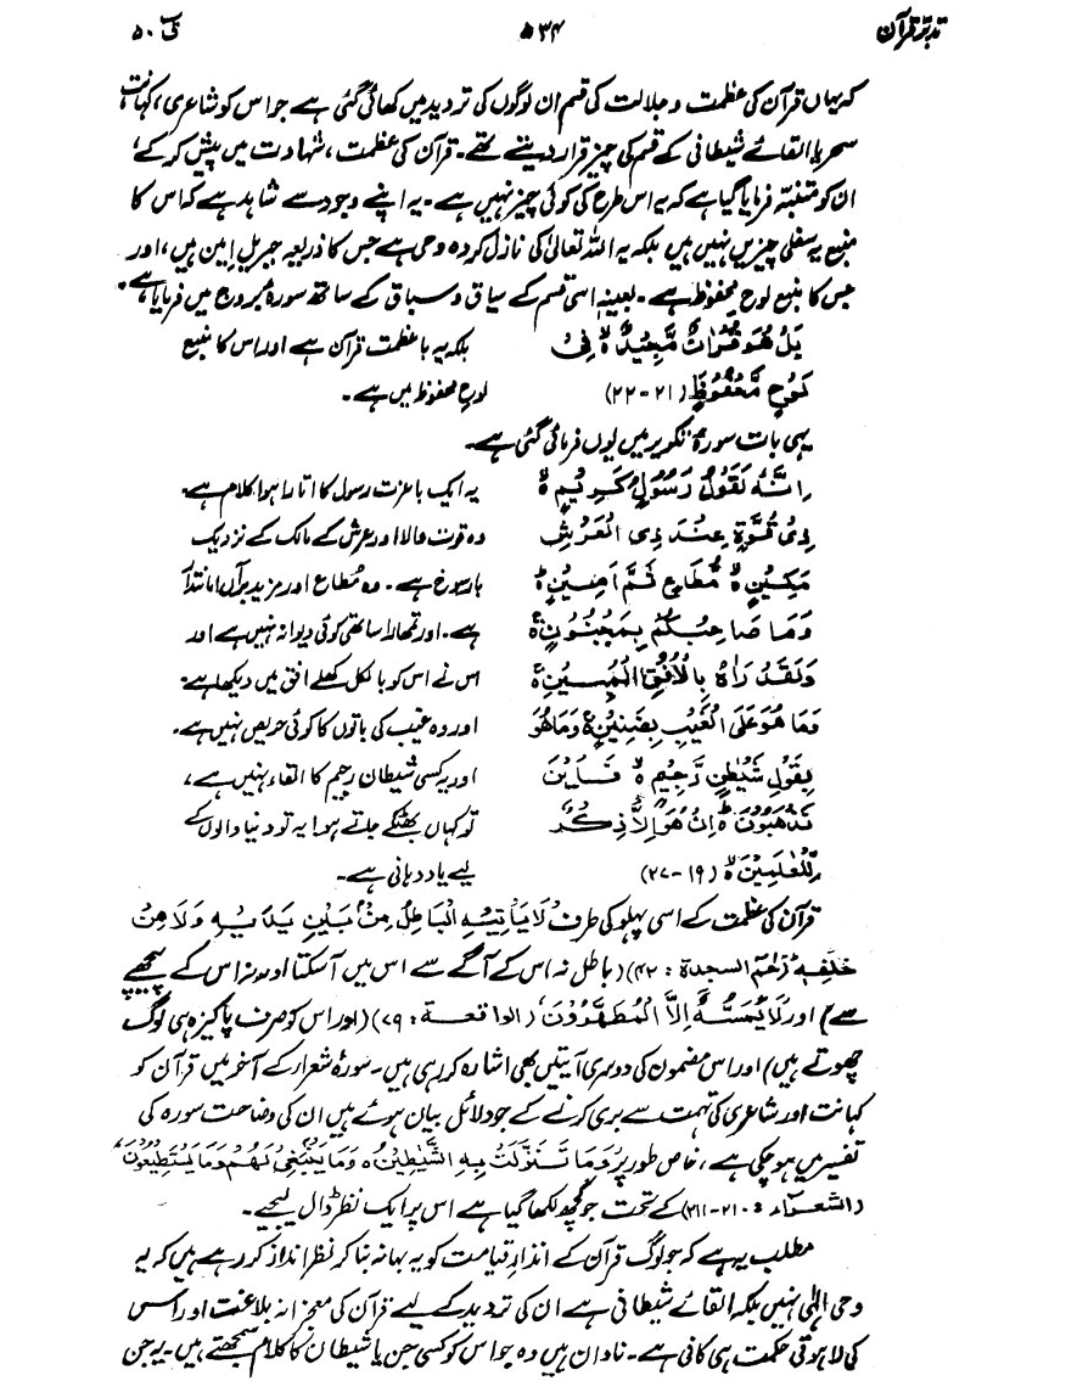 تدبّرِ قرآن ۵۳۴ قٓ ۵۰
کہ یہاں قرآن کی عظمت و جلالت کی قسم ان لوگوں کی تردید میں کھائی گئی ہے جو اس کو شاعری، کہانت،
سحر یا القائے شیطانی کے قسم کی چیز قرار دیتے تھے۔ قرآن کی عظمت، شہادت میں پیش کر کے،
ان کو متنبہ فرمایا گیا ہے کہ یہ اس طرح کی کوئی چیز نہیں ہے۔ یہ اپنے وجود سے شاہد ہے کہ اس کا
منبع یہ سفلی چیزیں نہیں ہیں بلکہ یہ اللہ تعالیٰ کی نازل کردہ وحی ہے جس کا ذریعہ جبریل امین ہیں، اور
جس کا منبع لوح محفوظ ہے۔ بعینہٖ اسی قسم کے سیاق و سباق کے ساتھ سورۂ بروج میں فرمایا ہے۔
بَلْ هُوَ قُرْاٰنٌ مَّجِيْدٌ ۙ فِيْ بلکہ یہ با عظمت قرآن ہے اور اس کا منبع
لَوْحٍ مَّحْفُوْظٍ (۲۱-۲۲) لوحِ محفوظ میں ہے۔
یہی بات سورۂ تکویر میں یوں فرمائی گئی ہے۔
اِنَّهٗ لَقَوْلُ رَسُوْلٍ كَرِيْمٍ ۙ یہ ایک باعزت رسول کا اتارا ہوا کلام ہے۔
ذِيْ قُوَّةٍ عِنْدَ ذِي الْعَرْشِ وہ قوت والا اور عرش کے مالک کے نزدیک
مَكِيْنٍ ۙ مُّطَاعٍ ثَمَّ اَمِيْنٍ ؕ بارسوخ ہے۔ وہ مُطاع اور مزید برآں امانتدار
وَمَا صَاحِبُكُمْ بِمَجْنُوْنٍ ۚ ہے۔ اور تمہارا ساتھی کوئی دیوانہ نہیں ہے اور
وَلَقَدْ رَاٰهُ بِالْاُفُقِ الْمُبِيْنِ ۚ اس نے اس کو بالکل کھلے افق میں دیکھا ہے۔
وَمَا هُوَ عَلَى الْغَيْبِ بِضَنِيْنٍ ۚ وَمَا هُوَ اور وہ غیب کی باتوں کا کوئی حریص نہیں ہے۔
بِقَوْلِ شَيْطٰنٍ رَّجِيْمٍ ۙ فَاَيْنَ اور یہ کسی شیطان رجیم کا القاء نہیں ہے،
تَذْهَبُوْنَ ؕ اِنْ هُوَ اِلَّا ذِكْرٌ تو کہاں بھٹکے جاتے ہو! یہ تو دنیا والوں کے
لِّلْعٰلَمِيْنَ ۙ (۱۹-۲۷) لیے یاد دہانی ہے۔
قرآن کی عظمت کے اسی پہلو کی طرف لَا يَاْتِيْهِ الْبَاطِلُ مِنْۢ بَيْنِ يَدَيْهِ وَلَا مِنْ
خَلْفِهٖ (حٰمٓ السجدة : ۴۲) (باطل نہ اس کے آگے سے اس میں آسکتا اور نہ اس کے پیچھے
سے) اور لَا يَمَسُّهٗٓ اِلَّا الْمُطَهَّرُوْنَ (الواقعة : ۷۹) (اور اس کو صرف پاکیزہ ہی لوگ
چھوتے ہیں) اور اس مضمون کی دوسری آیتیں بھی اشارہ کر رہی ہیں۔ سورۂ شعراء کے آخر میں قرآن کو
کہانت اور شاعری کی تہمت سے بری کرنے کے جو دلائل بیان ہوئے ہیں ان کی وضاحت سورہ کی
تفسیر میں ہو چکی ہے، خاص طور پر وَمَا تَنَزَّلَتْ بِهِ الشَّيٰطِيْنُ ۰ وَمَا يَنْۢبَغِيْ لَهُمْ وَمَا يَسْتَطِيْعُوْنَ
(الشعرآء : ۲۱۰-۲۱۱) کے تحت جو کچھ لکھا گیا ہے اس پر ایک نظر ڈال لیجیے۔
مطلب یہ ہے کہ جو لوگ قرآن کے انذارِ قیامت کو یہ بہانہ بنا کر نظر انداز کر رہے ہیں کہ یہ
وحی الٰہی نہیں بلکہ القائے شیطانی ہے ان کی تردید کے لیے قرآن کی معجزانہ بلاغت اور اس
کی لاہوتی حکمت ہی کافی ہے۔ نادان ہیں وہ جو اس کو کسی جن یا شیطان کا کلام سمجھتے ہیں۔ یہ جن